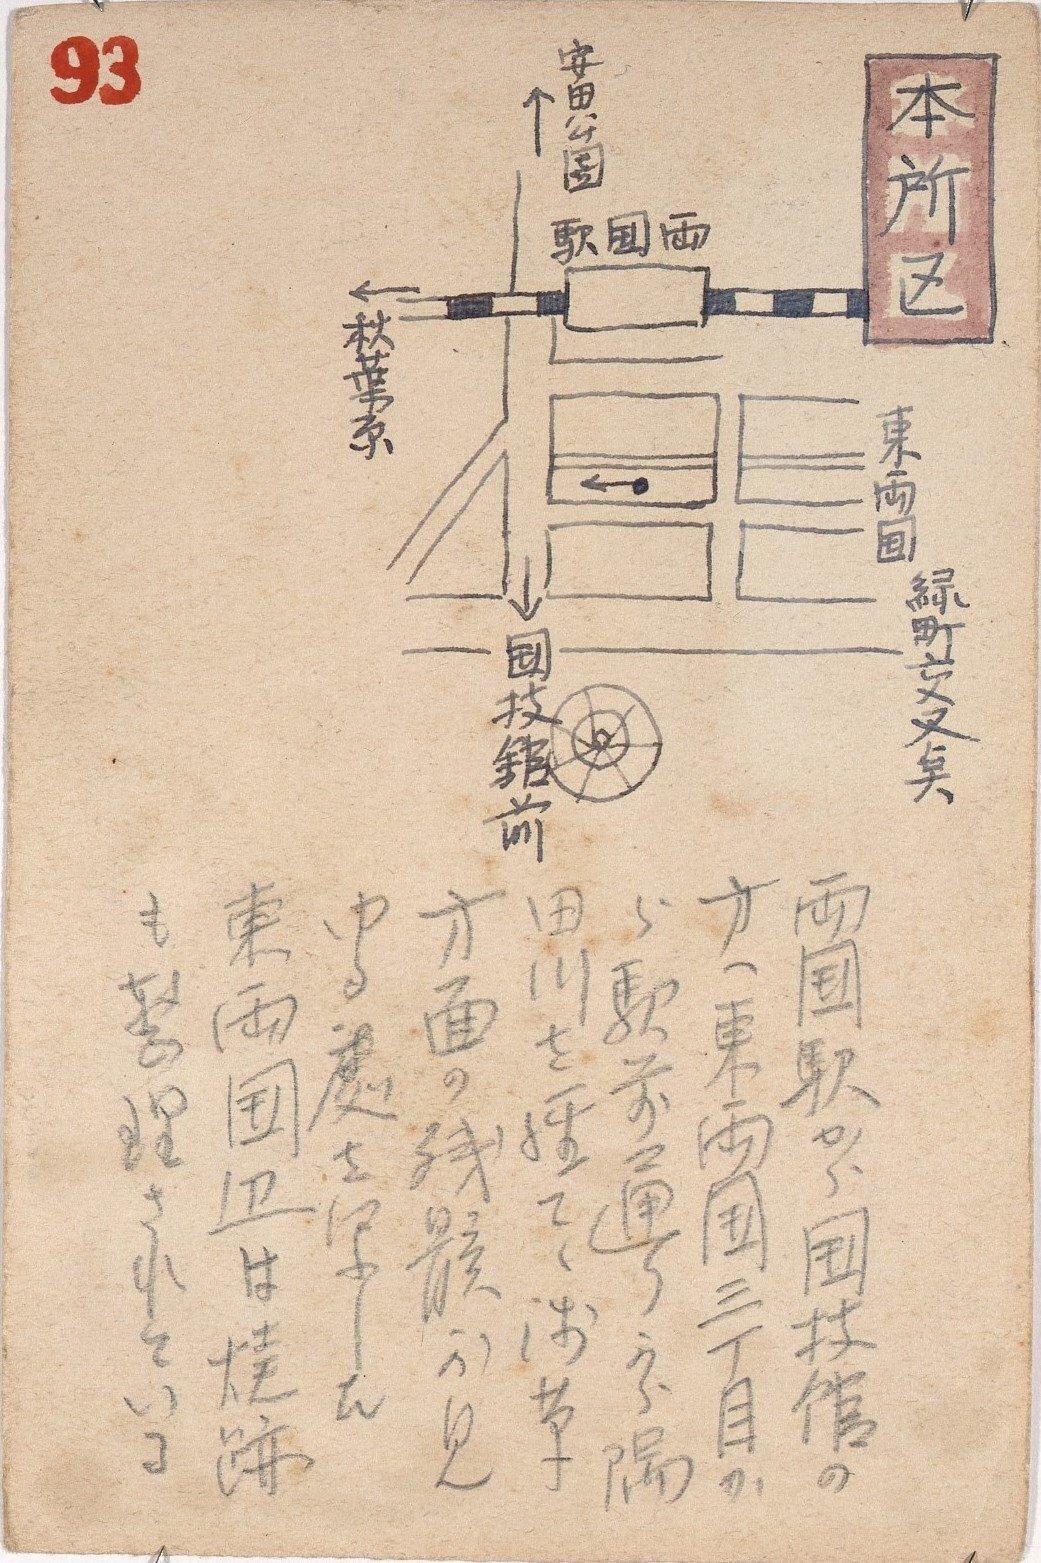 93
本所区
安田公園
両国駅
秋葉原
東両国
緑町交叉点
国技館前
両国駅から国技館の
方へ東両国三丁目か
ら駅前通りから隅
田川を隔てゝ浅草
方面の残骸が見
ゆる處を写した
東両国辺は焼跡
も整理されている